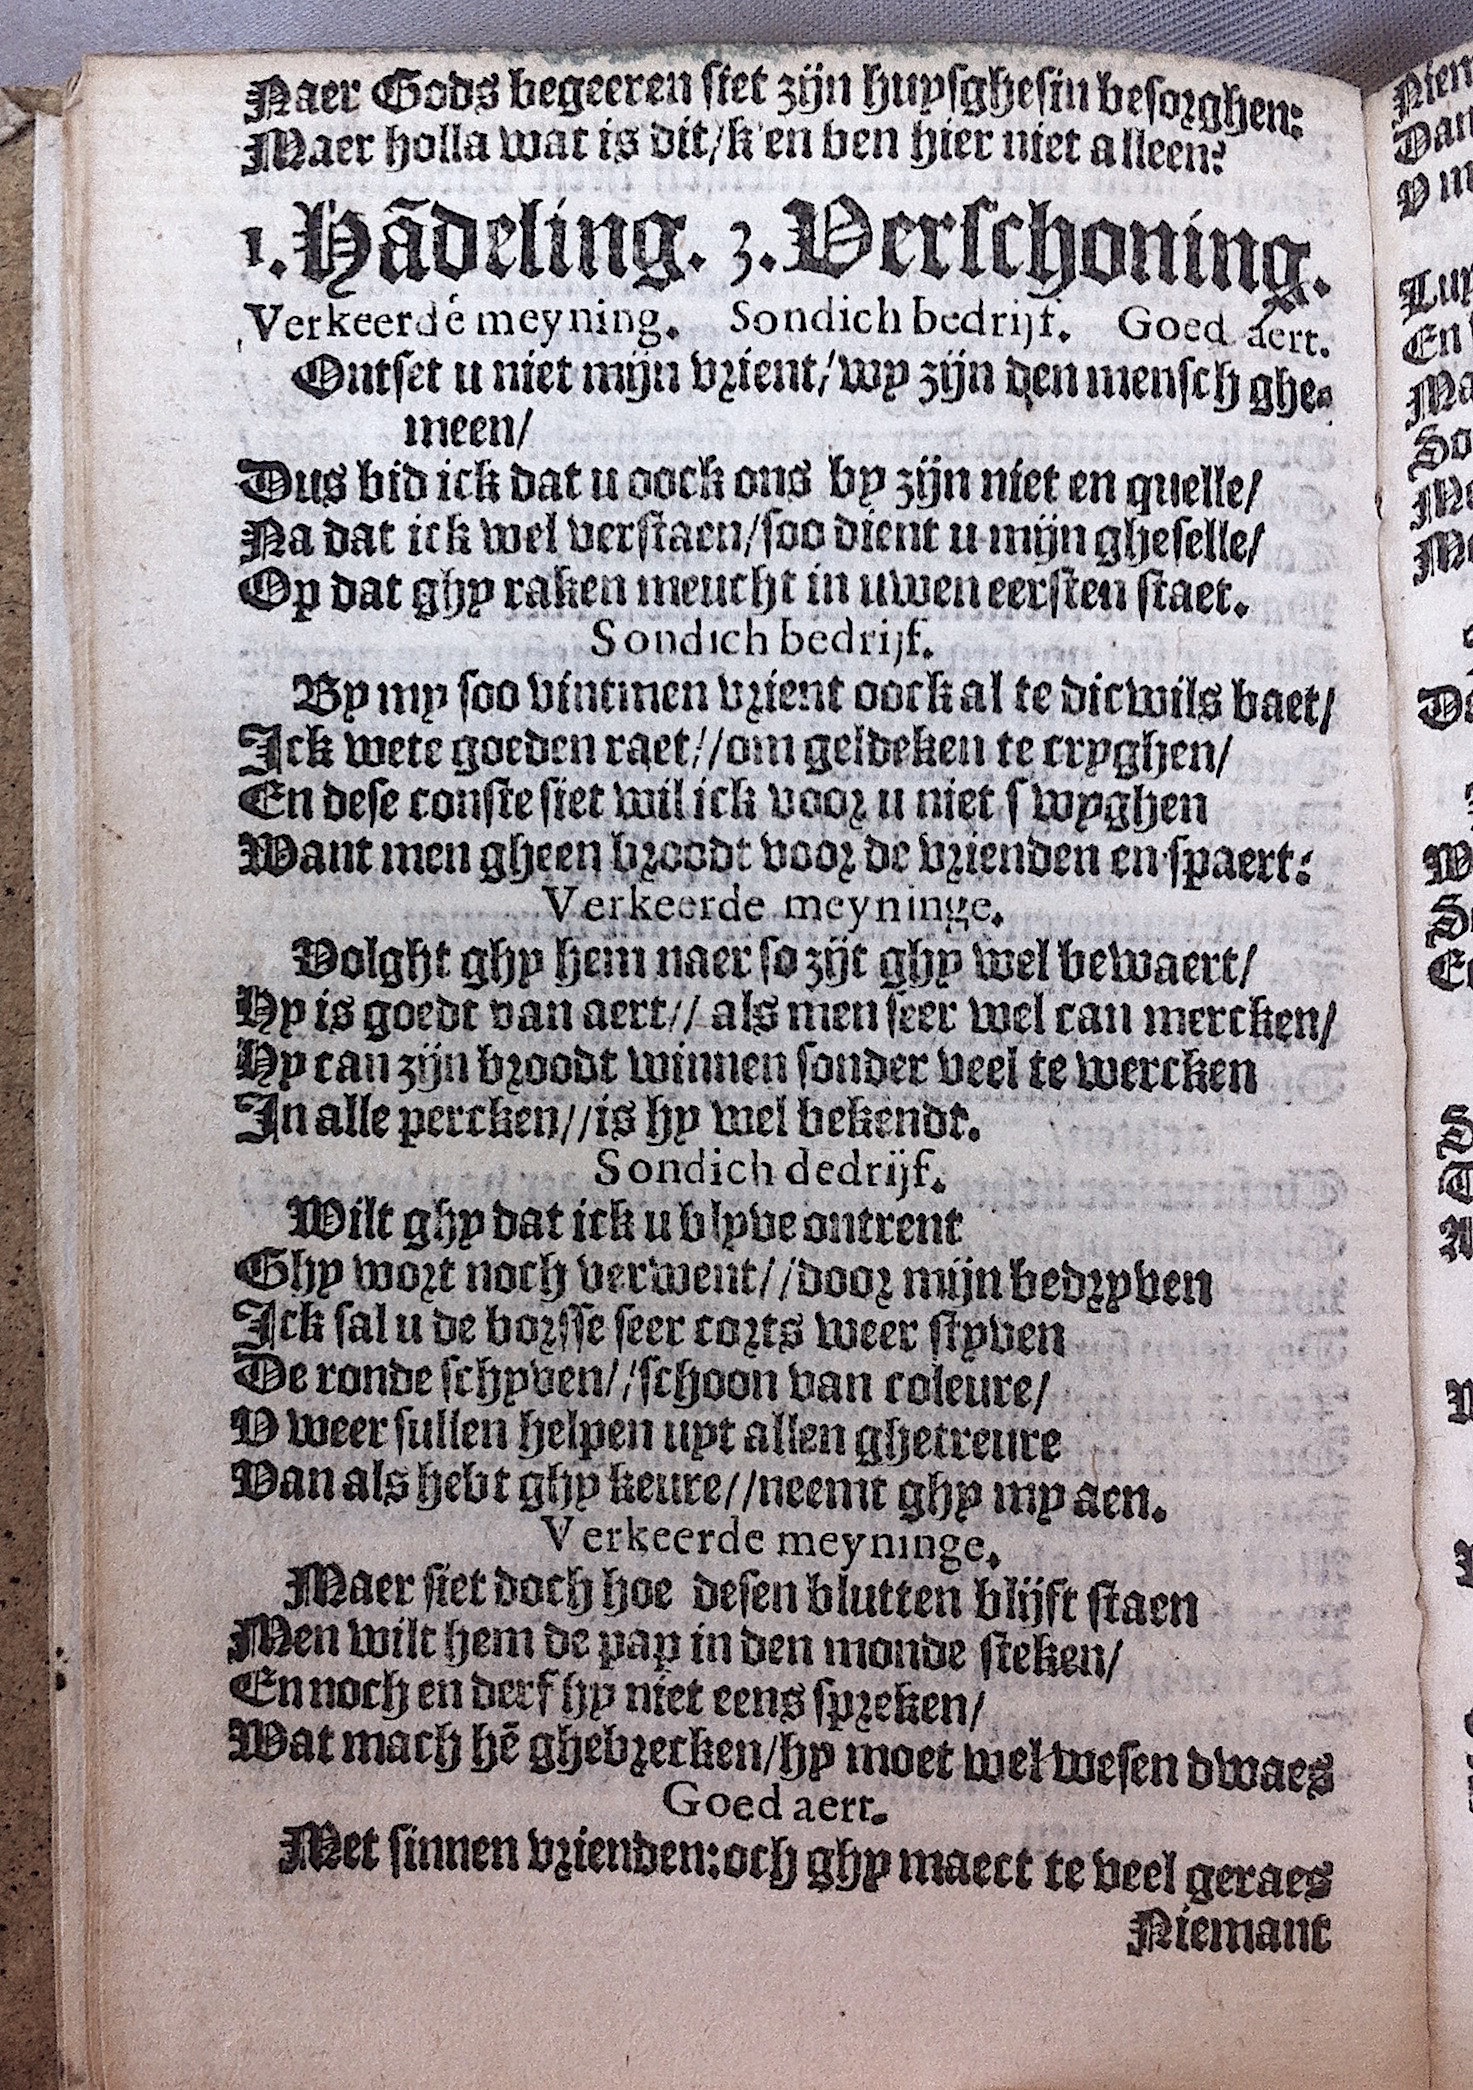 Naer Gods begeeren siet zijn huysghesin besorghen:
Maer holla wat is dit/k'en ben hier niet alleen?
1. Hãdeling. 3. Verschoning.
Verkeerde meyning. Sondich bedrijf. Goed aert.
Ontset u niet mijn vrient/wy zijn den mensch ghe-
meen/
Dus bid ick dat u oock ons by zijn niet en quelle/
Na dat ick wel verstaen/soo dient u mijn gheselle/
Op dat ghy raken meucht in uwen eersten staet.
Sondich bedrijf.
By my soo vintmen vrient oock al te dicwils baet/
Ick wete goeden raet//om geldeken te cryghen/
En dese conste siet wil ick voor u niet swyghen
Want men gheen broodt voor de vrienden en spaert:
Verkeerde meyninge.
Volght ghy hem naer so zijt ghy wel bewaert/
Hy is goedt van aert// als men seer wel can mercken/
Hy can zijn broodt winnen sonder veel te wercken
In alle percken//is hy wel bekendt.
Sondich dedrijf.
Wilt ghy dat ick u blyve ontrent
Ghy wort noch verwent//door mijn bedryven
Ick sal u de borsse seer corts weer styven
De ronde schyven//schoon van coleure/
V weer sullen helpen uyt allen ghetreure
Van als hebt ghy keure//neemt ghy my aen.
Verkeerde meyninge.
Maer siet doch hoe desen blutten blijft staen
Men wilt hem de pap in den monde steken/
En noch en derf hy niet eens spreken/
Wat mach hẽ ghebrecken/hy moet wel wesen dwaes
Goed aert.
Met sinnen vrienden:och ghy maect te veel geraes
Niemant